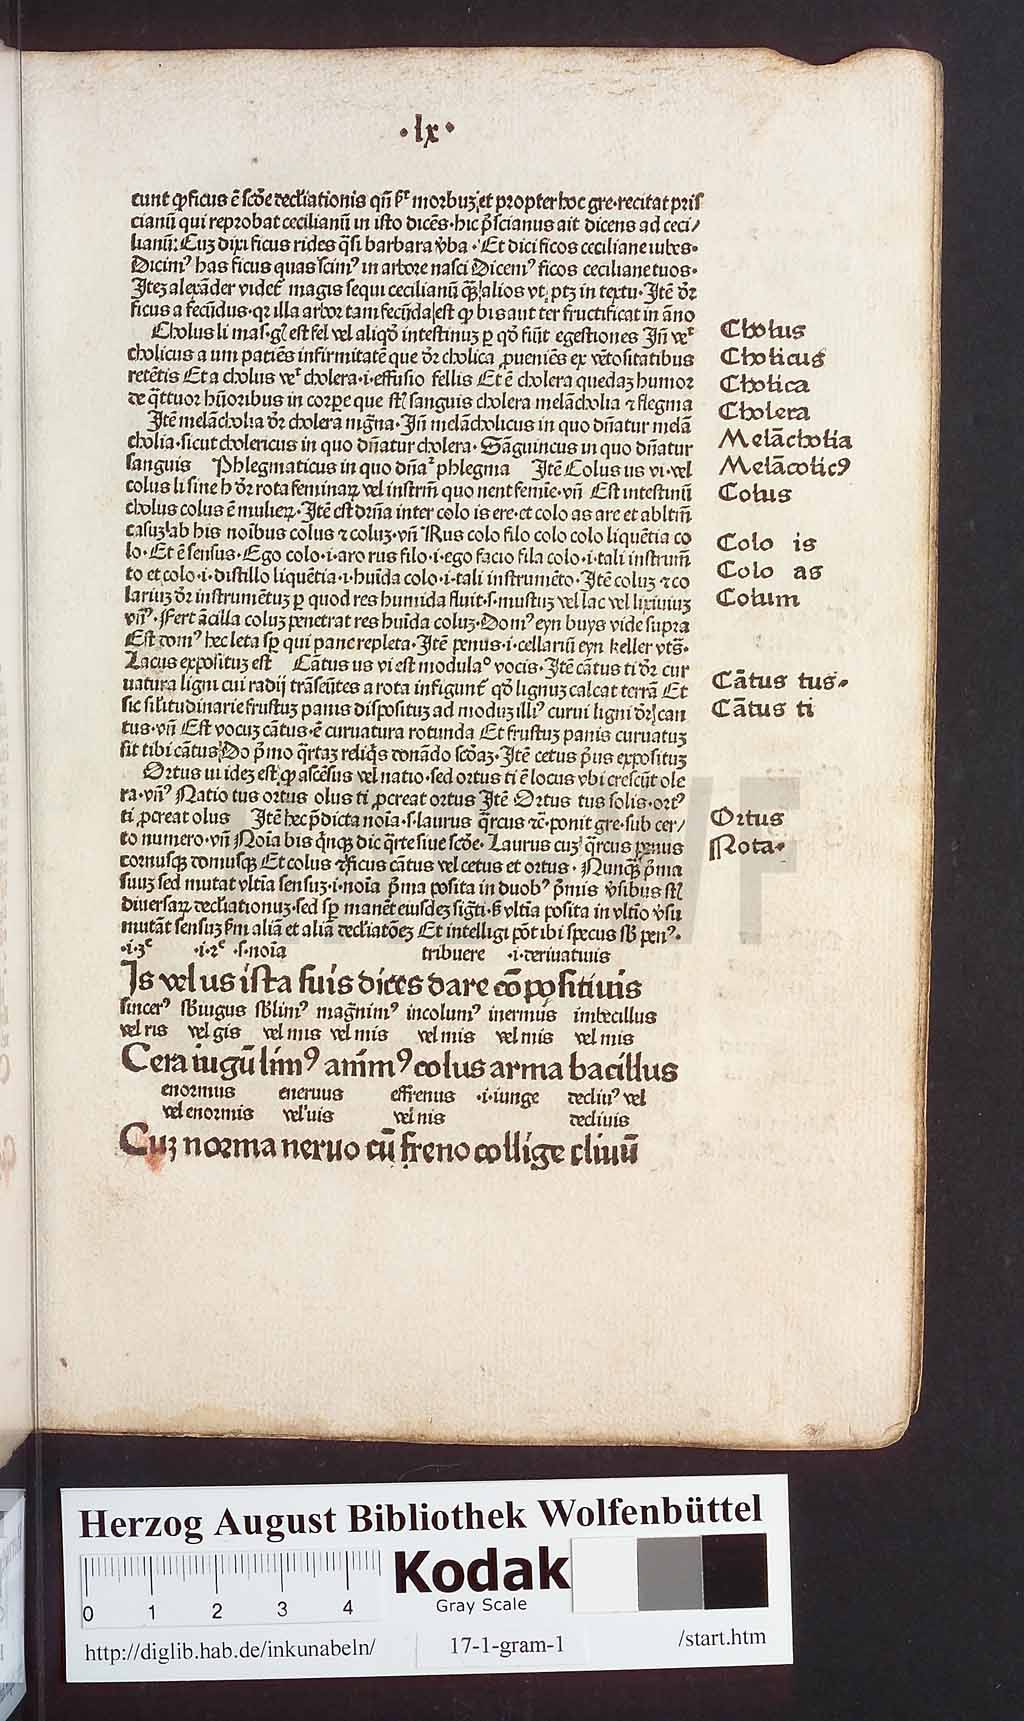 ·lx·
cunt ꝙ ficus ē scōe declīationis qn̄ sͬ morbuꝫ et propter hoc gre·recitat pris
cianū qui reprobat cecilianū in isto dicēs·hic p̄scianus ait dicens ad ceci/
lianū: Cuꝫ dixi ficus rides q̄si barbara v̄ba· Et dici ficos ceciliane iubes·
Dicimꝰ has ficus quas scimꝰ in arbore nasci Dicemꝰ ficos ceciliane tuos·
Iteꝫ alexāder videt᷑ magis sequi cecilianū q̄ꝫ alios vt ptꝫ in textu·Itē d̄r
ficus a fecūdus·qꝛ illa arbor tam fecūda est ꝙ bis aut ter fructificat in āno
Cholus li mas·gͣl est fel vel aliqd̄ intestinuꝫ ꝑ qd̄ fiūt egestiones Jn̄ veͬ
cholicus a um patiēs infirmitatē que d̄r cholica ꝓueniēs ex vētositatibus
retētis Et a cholus veͬ cholera·i·effusio fellis Et ē cholera quedaꝫ humor
de q̄ttuor hūoribus in corpe que sͭ sanguis cholera melācholia ⁊ flegma
Itē melācholia d̄r cholera nigra·Jn̄ melācholicus in quo dn̄atur melā
cholia·sicut cholericus in quo dn̄atur cholera·Sāguincus in quo dn̄atur
sanguis Phlegmaticus in quo dn̄aͬ phlegma Itē Colus us vi·vel
colus li sine h d̄r rota feminaꝝ vel instrm̄ quo nent femīe·vn̄ Est intestinū
cholus colus ē mulieꝝ·Itē est dr̄na inter colo is ere·et colo as are et abltm̄
casuꝫ ab his noībus colus ⁊ coluꝫ·vn̄ Rus colo filo colo colo liquētia co
lo·Et ē sensus·Ego colo·i·aro rus filo·i·ego facio fila colo·i·tali instrum̄
to et colo·i·distillo liquētia·i·huīda colo·i·tali instrumēto·Itē coluꝫ ⁊ co
lariuꝫ d̄r instrumētuꝫ ꝑ quod res humida fluit·s·mustuꝫ vel lac vel lixiuiuꝫ
vn̄ꝰ·Fert ācilla coluꝫ penetrat res huīda coluꝫ·Domꝰ eyn buys vide supra
Est domꝰ hec leta sꝑ qui pane repleta·Itē penus·i·cellariū eyn keller vt̄s·
Lacus expositus est Cātus us vi est modulaͦ vocis·Itē cātus ti d̄r cur
uatura ligni cui radij trāseūtes a rota infigunt᷑ qd̄ lignuꝫ calcat terrā Et
sic silitudinarie frustuꝫ panis dispositus ad moduꝫ illiꝰ curui ligni d̄r can
tus·vn̄ Est vocuꝫ cātus·ē curuatura rotunda Et frustuꝫ panis curuatuꝫ
sit tibi cātus Do p̄mo q̄rtaꝫ reliq̄s donādo scd̄aꝫ·Itē cetus p̄us expositus
Ortus ui ideꝫ est ꝙ ascēsus vel natio·sed ortus ti ē locus vbi crescūt ole
ra·vn̄ꝰ Natio tus ortus olus ti ꝓcreat ortus Itē Ortus tus solis·ortꝰ
ti ꝓcreat olus Itē hec p̄dicta noīa·s·laurus q̄rcus ⁊c̄·ponit gre·sub cer/
to numero·vn̄ Noīa bis q̄nqꝫ dic q̄rte siue scōe·Laurus cuꝫ q̄rcus pinus
cornusqꝫ domusqꝫ Et colus ⁊ ficus cātus vel cetus et ortus·Nunqꝫ p̄ma
suuꝫ sed mutat vltīa sensuꝫ·i·noīa p̄ma posita in duobꝰ p̄mis v̄sibus sͭ
diuersaꝝ declīationuꝫ·sed sꝑ manēt eiusdeꝫ siḡti·s̄ vltīa posita in vltīo v̄su
mutāt sensuꝫ s̄m aliā et aliā declīatōeꝫ Et intelligi pōt ibi specus sb̄ penꝰ·
·i·ꝫͨ ·i·ꝛͨ ·s·noīa tribuere ·i·deriuatiuis
Is vel us ista suis dices dare cōpositiuis
sincerꝰ sb̄iugus sb̄limꝰ magn̄imꝰ incolumꝰ inermus imbecillus
vel ris vel gis vel mis vel mis vel mis vel mis vel mis
Cera iugū limꝰ anīmꝰ colus arma bacillus
enormus eneruus effrenus ·i·iunge decliuꝰ vel
vel enormis vel uis vel nis decliuis
Cuꝫ norma neruo cū freno collige cliuū
Cholus
Cholicus
Cholica
Cholera
Melācholia
Melācolicꝰ
Colus
Colo is
Colo as
Colum
Cātus tus·
Cātus ti
Ortus
Nota·
Herzog August Bibliothek Wolfenbüttel
0 1 2 3 4
Kodak
Gray Scale
http://diglib.hab.de/inkunabeln/ 17-1-gram-1 /start.htm